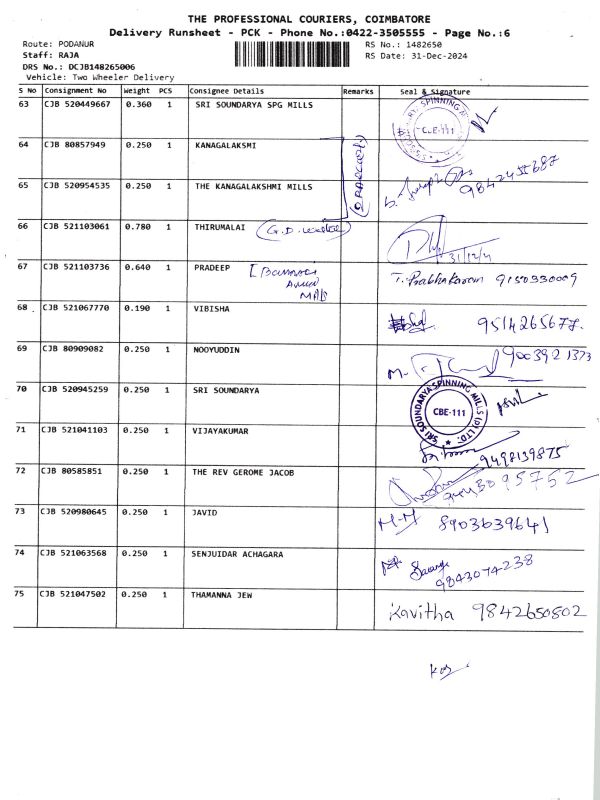 THE PROFESSIONAL COURIERS, COIMBATORE
Delivery Runsheet - PCK - Phone No.:0422-3505555 - Page No.:6
Route: PODANUR RS No.: 1482650
Staff: RAJA RS Date: 31-Dec-2024
DRS No.: DCJB148265006
Vehicle: Two Wheeler Delivery
S No Consignment No Weight PCS Consignee Details Remarks Seal & Signature
63 CJB 520449667 0.360 1 SRI SOUNDARYA SPG MILLS
CBE-111
64 CJB 80857949 0.250 1 KANAGALAKSMI
65 CJB 520954535 0.250 1 THE KANAGALAKSHMI MILLS 9842455687
66 CJB 521103061 0.780 1 THIRUMALAI 31/12/24
67 CJB 521103736 0.640 1 PRADEEP T. Prabhakaran 9150330009
68 CJB 521067770 0.190 1 VIBISHA 9514265677.
69 CJB 80909082 0.250 1 NOOYUDDIN 9003921373
70 CJB 520945259 0.250 1 SRI SOUNDARYA
SRI SOUNDARYA SPINNING MILLS (P) LTD. CBE-111
71 CJB 521041103 0.250 1 VIJAYAKUMAR 9498139875
72 CJB 80585851 0.250 1 THE REV GEROME JACOB
73 CJB 520980645 0.250 1 JAVID M-M 8903639641
74 CJB 521063568 0.250 1 SENJUIDAR ACHAGARA
9843074238
75 CJB 521047502 0.250 1 THAMANNA JEW Kavitha 9842650802